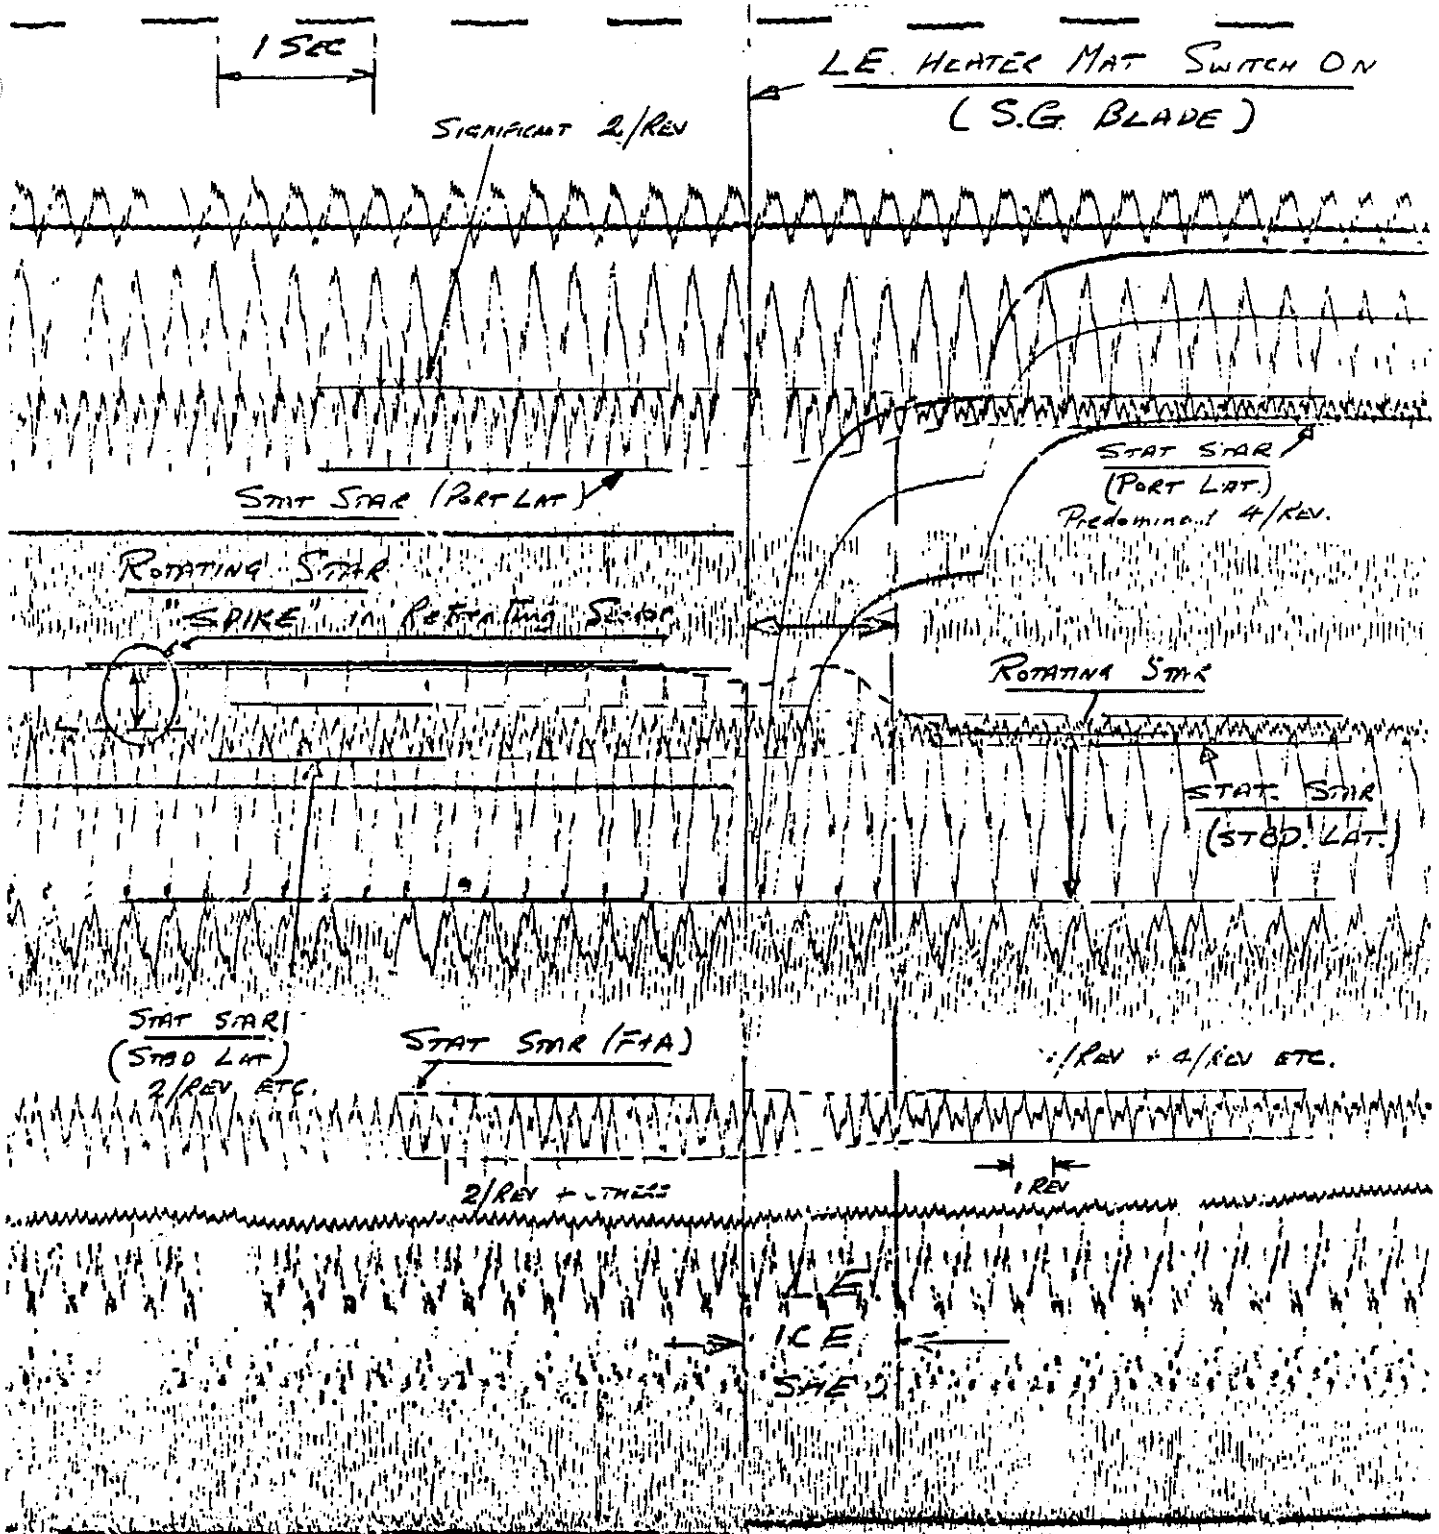 1 SEC
L.E. HEATER MAT SWITCH ON
(S.G. BLADE)
SIGNIFICANT 2/REV
STAT STAR (PORT LAT)
STAT STAR
(PORT LAT.)
Predominant 4/REV.
ROTATING STAR
"SPIKE" in Retreating
ROTATING STAR
STAT. STAR
(STBD. LAT.)
STAT STAR
(STBD LAT)
2/REV ETC.
STAT STAR (F+A)
/REV + 4/REV ETC.
2/REV +
1 REV
L.E.
ICE
SHED